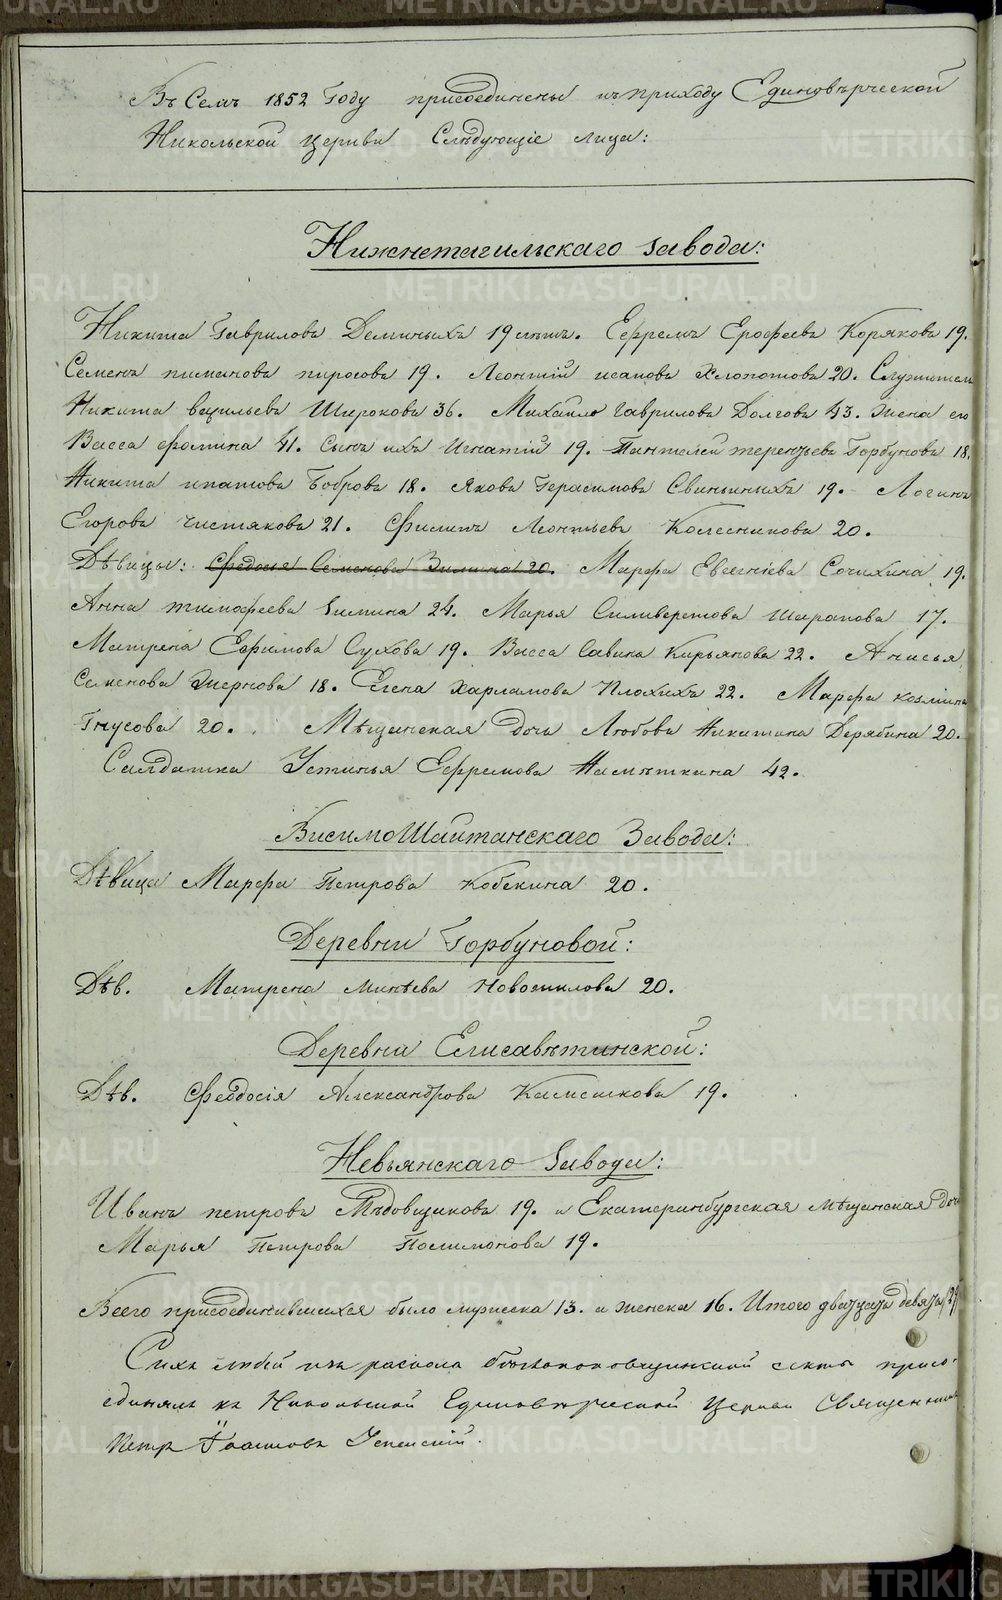 Въ Семъ 1852 Году присоединены къ приходу Единовѣрческой
Никольской церкви Слѣдующіе Лица:
Нижнетагильскаго завода:
Никита Гаврилова Деминыхъ 19 лѣтъ. Ефремъ Ерофеева Корякова 19.
Семенъ пименова пирогова 19. Леонтій исакова Хлопотова 20. Служитель
Никита васильева Широкова 36. Михайло гаврилова Долгова 43. жена его
Васса фомина 41. сынъ ихъ Игнатій 19. Пантелей терентьева Горбунова 18.
Никита ипатова Боброва 18. Якова Герасимова Свиньиныхъ 19. Логинъ
Егорова Чистякова 21. Филипъ Леонтьева Колесникова 20.
Дѣвицы: Федосья Семенова Зимина 20. Марфа Евгеніева Сочихина 19.
Анна тимофеева Зимина 24. Марья Силиверстова Шарапова 17.
Матрена Ефимова Сухова 19. Васса Савина Кирьянова 22. Анисья
Семенова Жернова 18. Елена Харламова Плохихъ 22. Марфа козмина
Гнусова 20. Мѣщанская дочь Любовь Никитина Дерябина 20.
Салдатка Устинья Ефремова Намяткина 42.
ВисимоШайтанскаго Завода:
Дѣвица Марфа Петрова Кобекина 20.
Деревни Горбуновой:
Дѣв. Матрена Минѣева Новоселова 20.
Деревни Елисавѣтинской:
Дѣв. Феодосія Александрова 19.
Невьянскаго Завода:
Иванъ петрова Мѣдовщикова 19. и Екатеринбургская мѣщанская дочь
Марья Петрова 19.
Всего присоединившихся было мужеска 13. а женска 16. Итого двадцать девять /29/
Сихъ людей изъ раскола сѣкты присо-
единялъ къ Никольской Единовѣрческой Церкви Священникъ
Петръ Іоаннова Успенскій.
METRIKI.GASO-URAL.RU